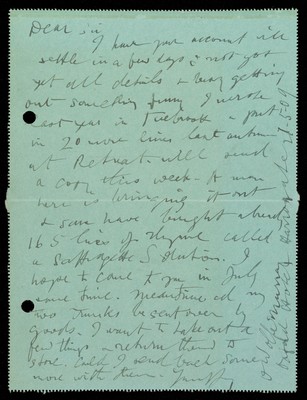 Dear Sir
I have your account ill
settle in a few days & not got
yet all details & busy getting
out something funny I wrote
last year in Tuebrook & put
in 20 more lines last autumn
at Retreat will send
a copy this week. A man
here is bringing it out
& some have bought ahead
165 lines of rhyme called
a Suffragette Solution. I
hope to come to you in July
some time. Meantime cd my
two trunks be sent over by
goods. I want to take out a
few things & return them to
store. Could I send back some
more with them. Yours
Harrogate 28-5-09